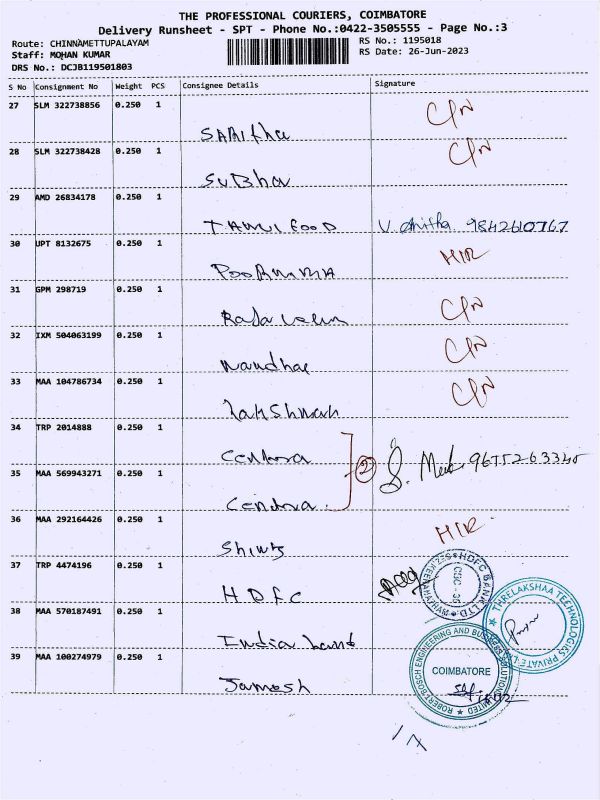 THE PROFESSIONAL COURIERS, COIMBATORE
Delivery Runsheet - SPT - Phone No.:0422-3505555 - Page No.:3
Route: CHINNAMETTUPALAYAM
RS No.: 1195018
Staff: MOHAN KUMAR
RS Date: 26-Jun-2023
DRS No.: DCJB119501803
S No Consignment No Weight PCS Consignee Details Signature
27 SLM 322738856 0.250 1
CPN
SARITha
28 SLM 322738428 0.250 1
CPN
SUBha
29 AMD 26834178 0.250 1
FOOD V. Anitha 9842610767
30 UPT 8132675 0.250 1
HIR
POORNIMA
31 GPM 298719 0.250 1
CPN
32 IXM 504063199 0.250 1
CPN
33 MAA 104786734 0.250 1
CPN
34 TRP 2014888 0.250 1
2
35 MAA 569943271 0.250 1
36 MAA 292164426 0.250 1
HIR
37 TRP 4474196 0.250 1
HDFC
HDFC BANK LTD
THRELAKSHAA TECHNOLOGIES PRIVATE
38 MAA 570187491 0.250 1
India Land
39 MAA 100274979 0.250 1
ROBERT BOSCH ENGINEERING AND BUSINESS SOLUTIONS LIMITED
COIMBATORE